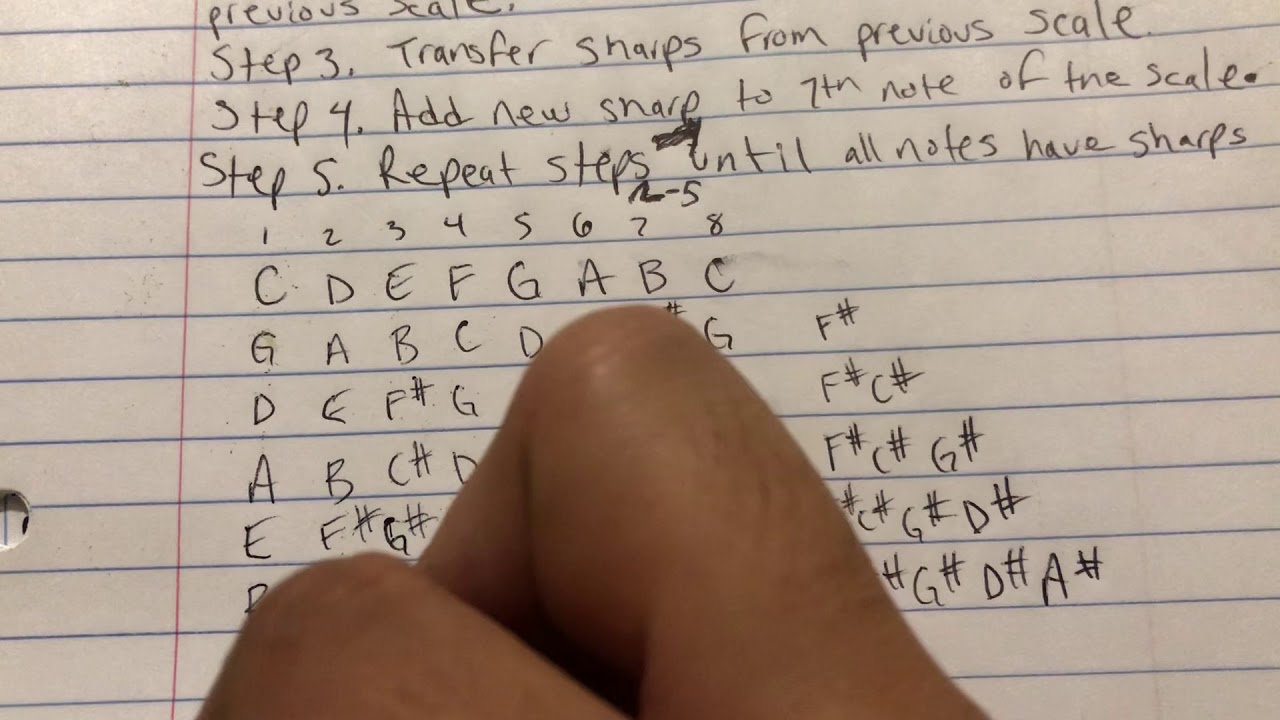 previous scale.
Step 3. Transfer sharps from previous scale.
Step 4. Add new sharp to 7th note of the scale.
Step 5. Repeat steps until all notes have sharps
2-5
1 2 3 4 5 6 7 8
C D E F G A B C
G A B C D # G F#
D E F# G F# C#
A B C# D F# C# G#
E F# G# # C# G# D#
B # G# D# A#